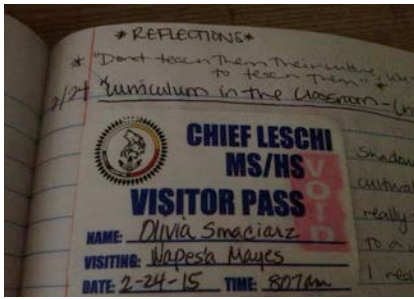 *REFLECTIONS*
* "Don't teach Them Their culture, use
to teach Them" *
2/24 Curriculum in the Classroom -
CHIEF LESCHI
MS/HS
VISITOR PASS
VOID
NAME: Olivia Smaciarz
VISITING: Wapesta Mayes
DATE: 2-24-15 TIME: 807am
Shadow
cultura
really
To a
I